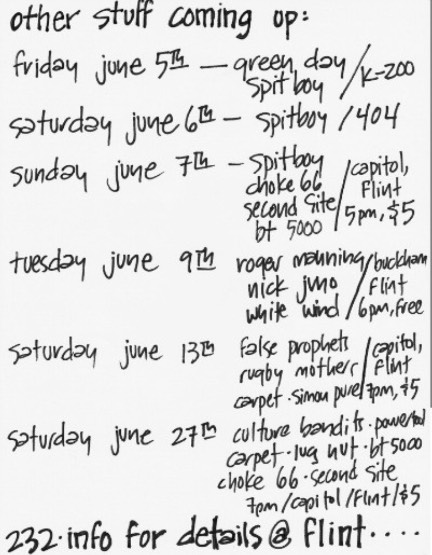 other stuff coming up:
friday june 5th — green day / k=200
spitboy
saturday june 6th – spitboy / 404
sunday june 7th – spitboy / capitol,
choke 66 flint
second site 5pm, $5
bt 5000
tuesday june 9th roger manning / buckham
nick juno flint
white wind 6pm, free
saturday june 13th false prophets / capitol,
rugby mothers flint
carpet · simon pure 7pm, $5
saturday june 27th culture bandits · powertool
carpet · lug nut · bt 5000
choke 66 · second site
7pm / capitol / flint / $5
232·info for details @ flint····